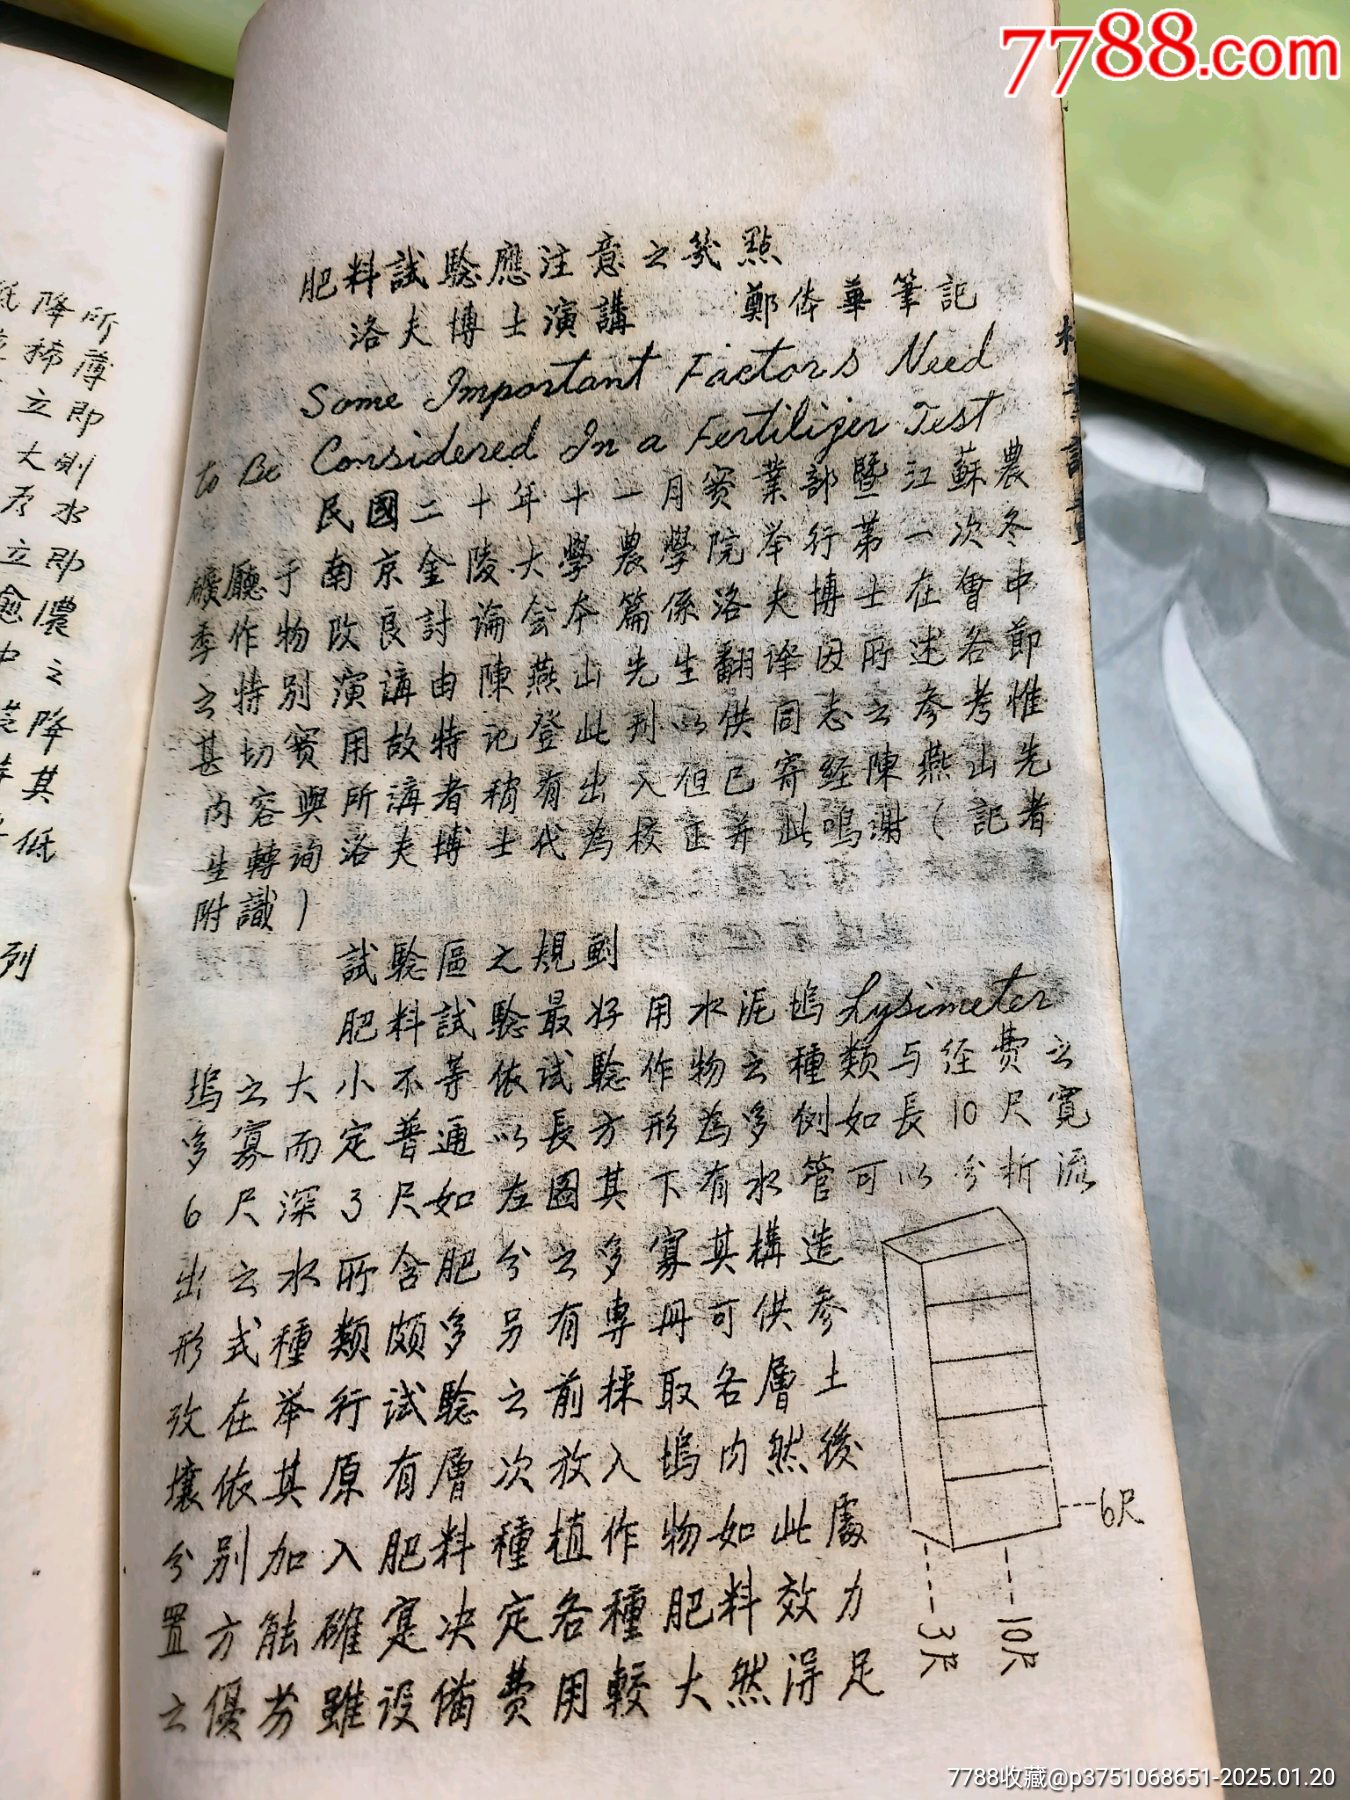 7788.com
肥料試驗應注意之幾點
洛夫博士演講 鄭体華筆記
Some Important Factors Need
to Be Considered In a Fertilizer Test
民國二十年十一月实業部暨江蘇農
礦廳于南京金陵大學農學院举行第一次冬
季作物改良討論会本篇係洛夫博士在會中
之特别演講由陳燕山先生翻译因所述各節
甚切实用故特记登此刊以供同志之参考惟
内容與所講者稍有出入但已寄経陳燕山先
生轉詢洛夫博士代為校正并此鳴謝(記者
附識)
試驗區之規劃
肥料試驗最好用水泥塢Lysimeter
塢之大小不等依試驗作物之種類与经費之
多寡而定普通以長方形為多例如長10尺寬
6尺深3尺如左圖其下有水管可以分析流
出之水所含肥分之多寡其構造
形式種類頗多另有專冊可供参
攷在举行試驗之前採取各層土
壤依其原有層次放入塢内然後
分别加入肥料種植作物如此處
置方能確定决定各種肥料效力
之優劣雖设備費用較大然得足
6尺
10尺
3尺
低降所
稀薄
立即
大則
水
立即
愈濃
中之
降
其
低
列
7788收藏@p3751068651-2025.01.20